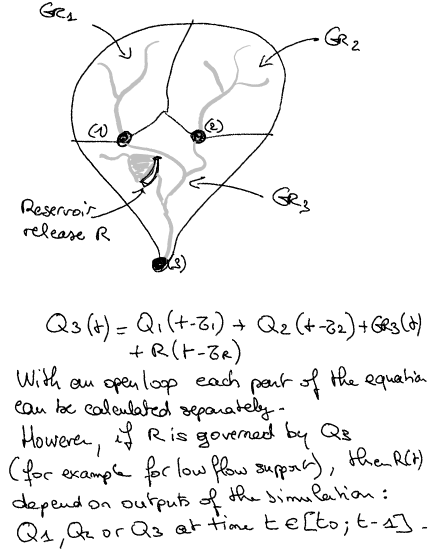 GR1
GR2
(1)
(2)
Reservoir
release R
GR3
(3)
Q3(t) = Q1(t-τ1) + Q2(t-τ2) + GR3(t)
+ R(t-τR)
With an open loop each part of the equation
can be calculated separately.
However, if R is governed by Q3
(for example for low flow support), then R(t)
depend on outputs of the simulation:
Q1, Q2 or Q3 at time t ∈ [t0; t-1].